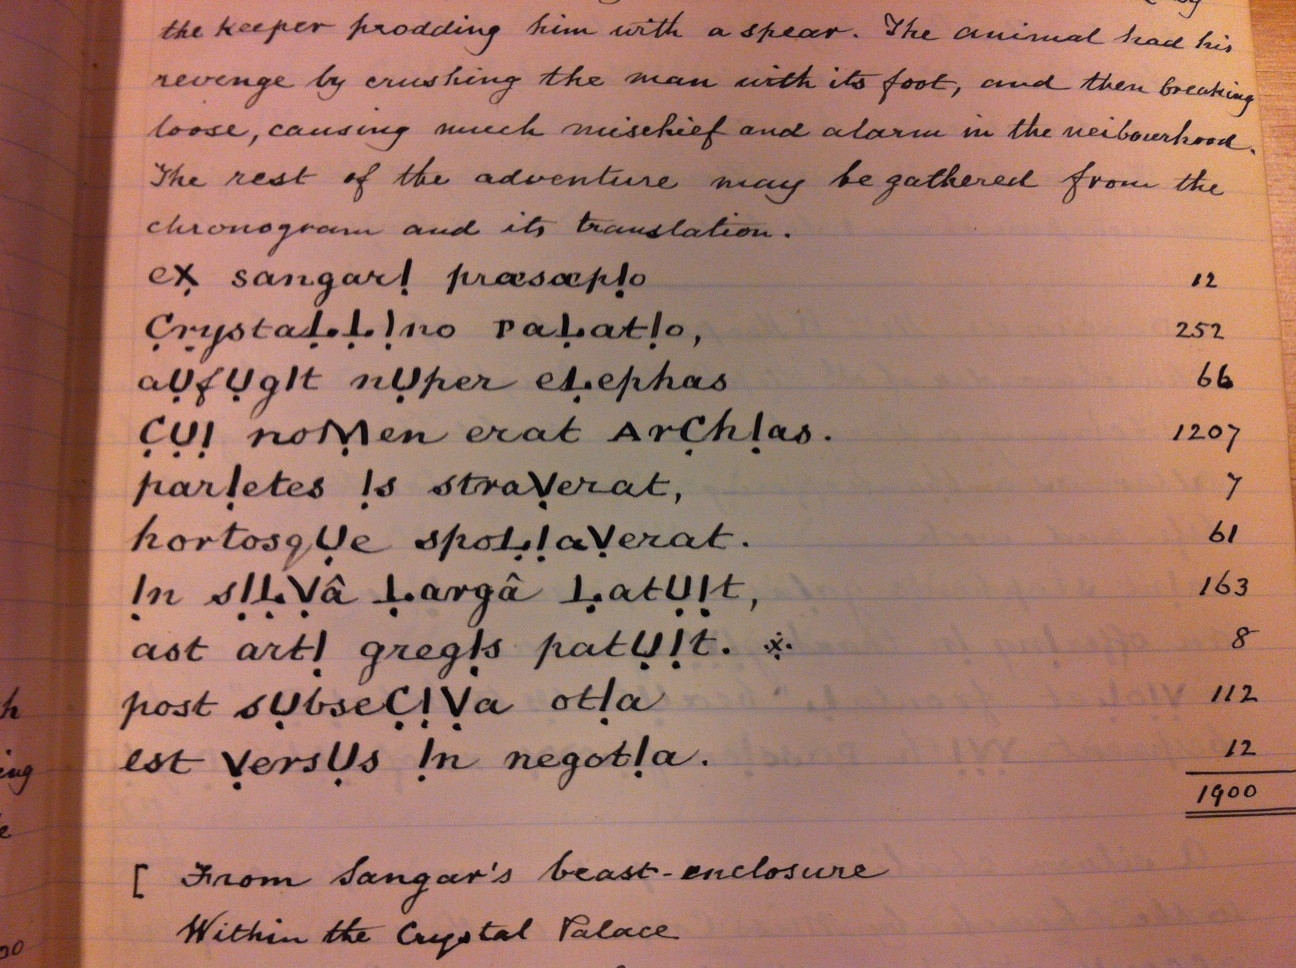 the keeper prodding him with a spear. The animal had his
revenge by crushing the man with its foot, and then breaking
loose, causing much mischief and alarm in the neibourhood.
The rest of the adventure may be gathered from the
chronogram and its translation.
eX sangarI præsæpIo 12
CrystaLLIno PaLatIo, 252
aUfUgIt nUper eLephas 66
CUI noMen erat ArChIas. 1207
parIetes Is straVerat, 7
hortosqUe spoLIaVerat. 61
In sILVâ Largâ LatUIt, 163
ast artI gregIs patUIt. ※ 8
post sUbseCIVa otIa 112
est VersUs In negotIa. 12
1900
[ From Sangar's beast-enclosure
Within the Crystal Palace